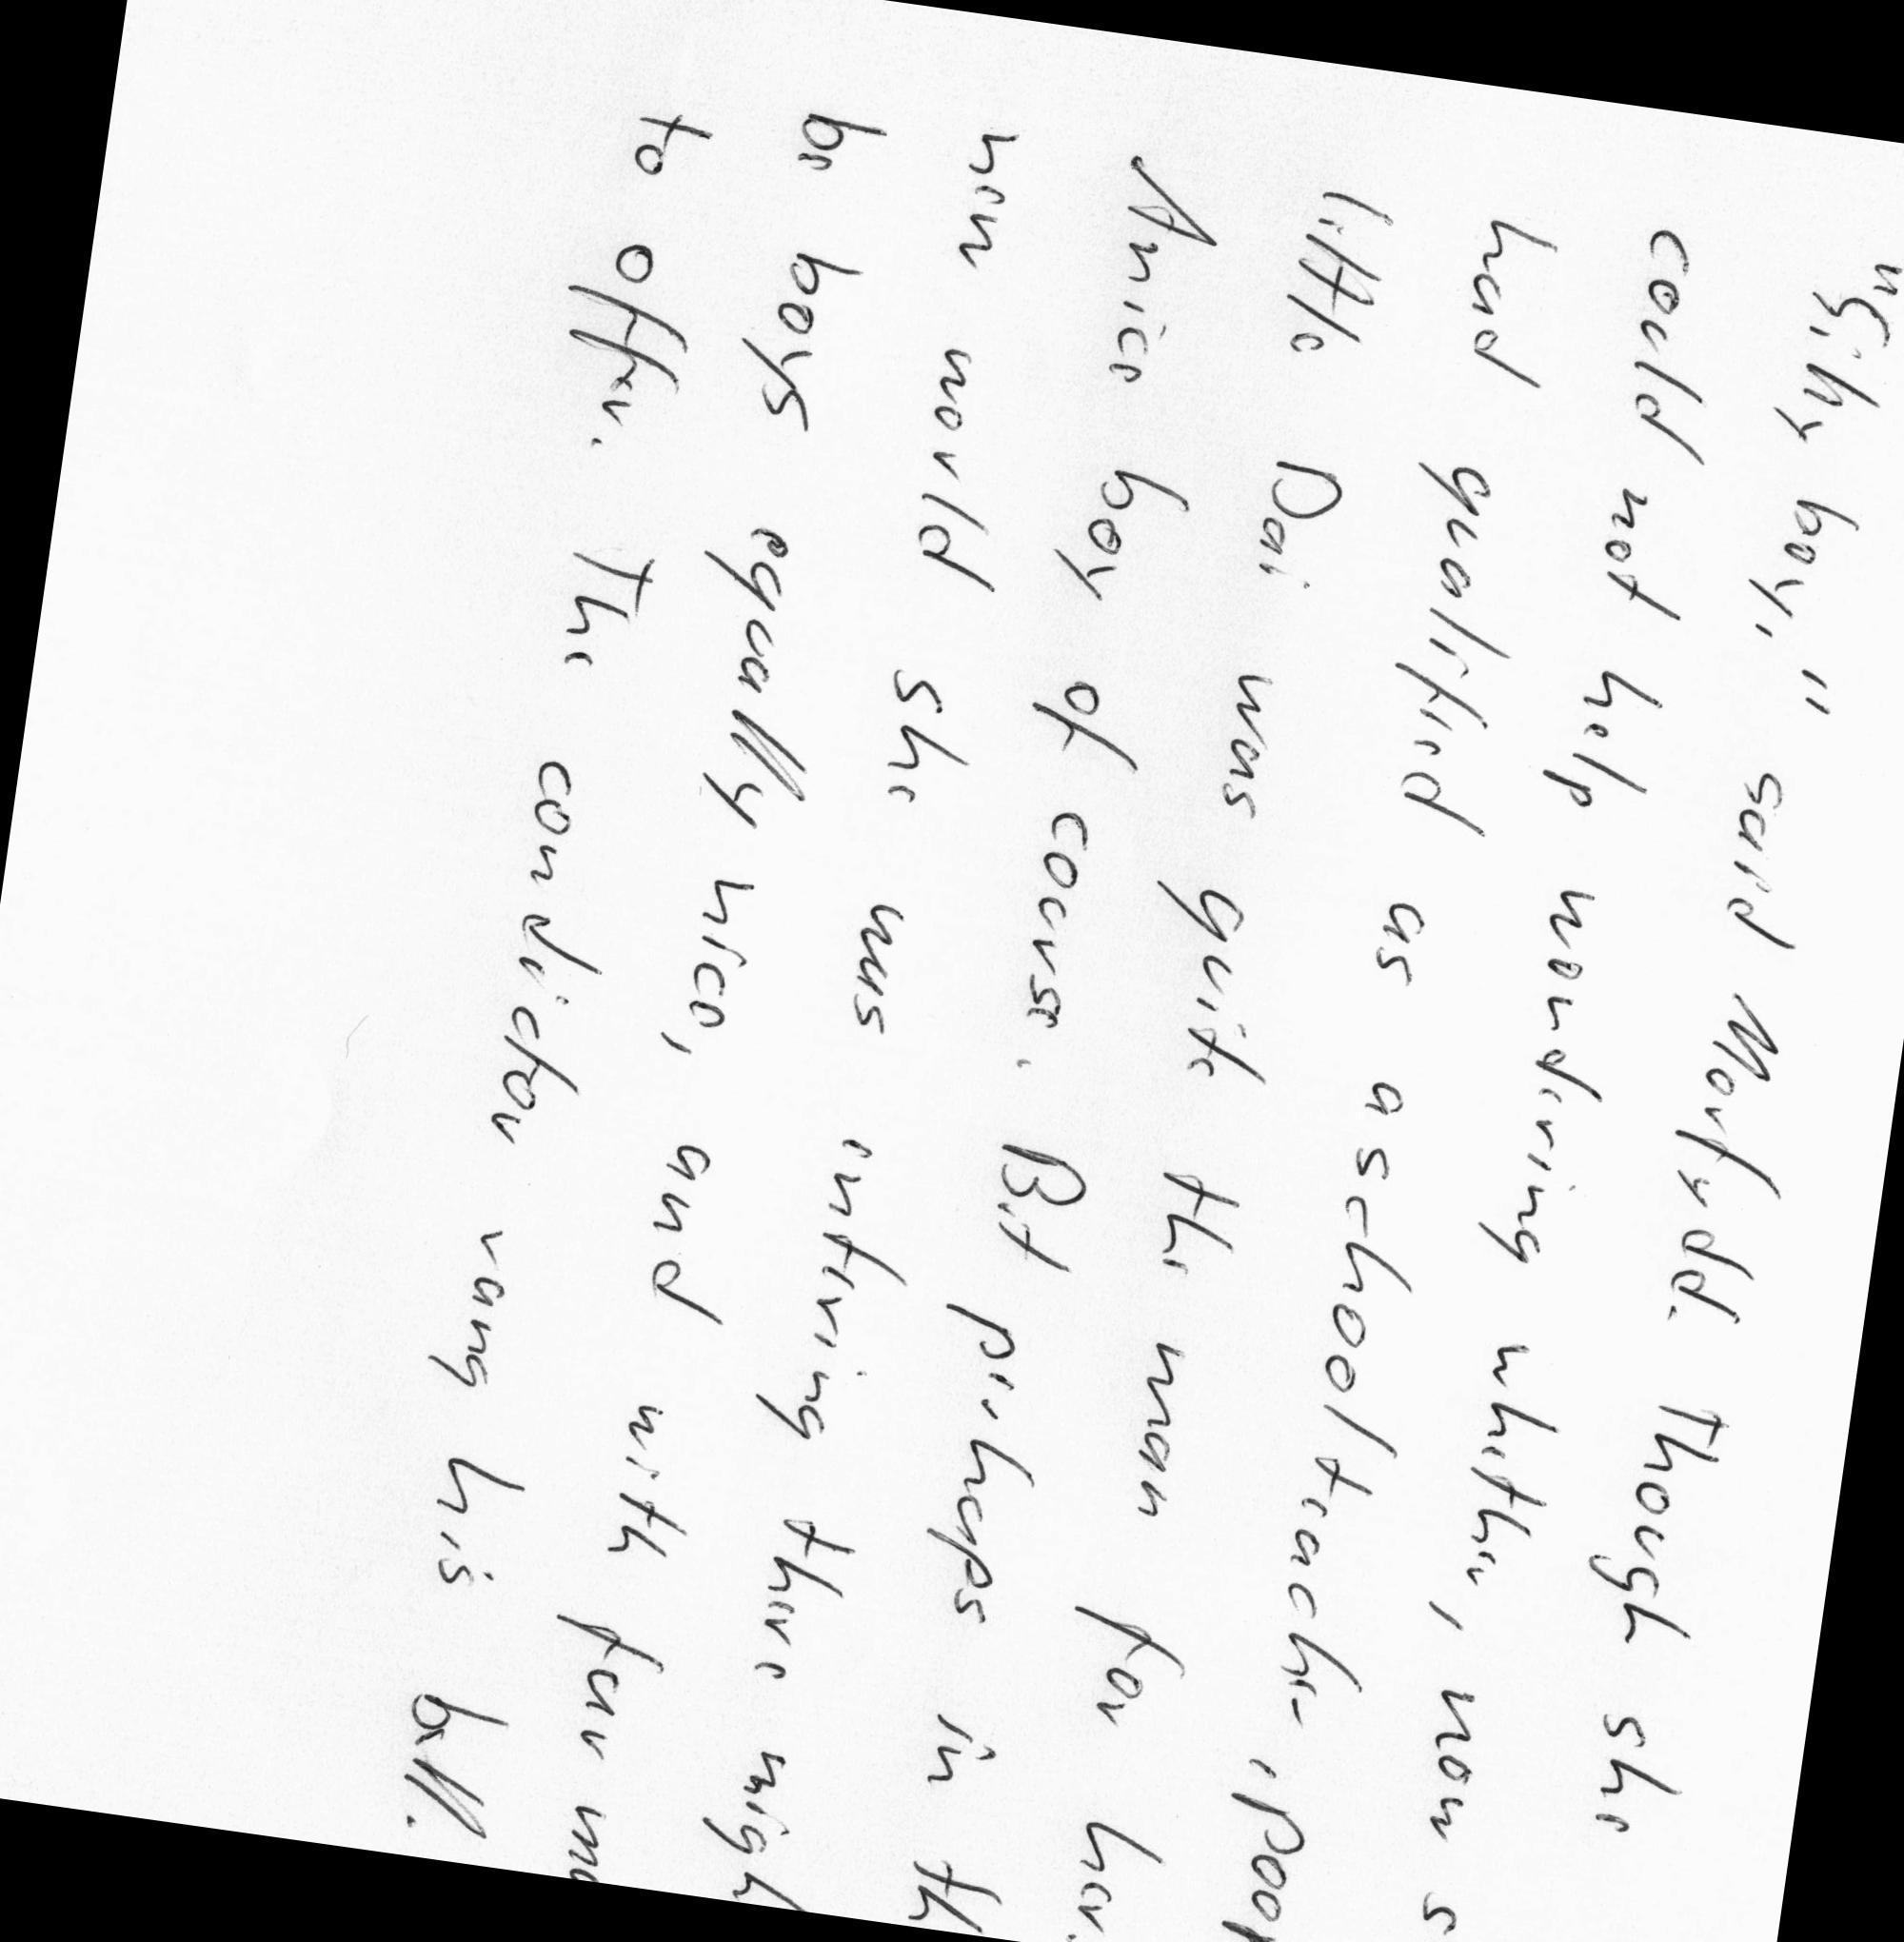 "Silly boy," said Morfydd. Though she
could not help wondering whether, now s
had qualified as a schoolteacher, poor
little Dai was quite the man for her.
A nice boy of course. But perhaps in th
new world she was entering there migh
be boys equally nice, and with far mo
to offer. The conductor rang his bell.